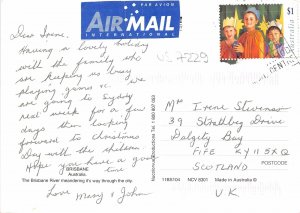 PAR AVION
AIR MAIL
INTERNATIONAL
$1
Australia
Dear Irene,
Having a lovely holiday
with the family who
are keeping us busy
playing games etc. We
are going to Sydney
next week for a few
days then looking
forward to Christmas
Day with the children
Hope you have a good
time
Love Mary & John
BRISBANE
Australia.
The Brisbane River meandering it's way through the city.
1193704
NCV 5301
Made in Australia ©
Mrs Irene Stevenson
39 Strathley Drive
Dalgety Bay
FIFE KY11 5XQ
SCOTLAND
UK